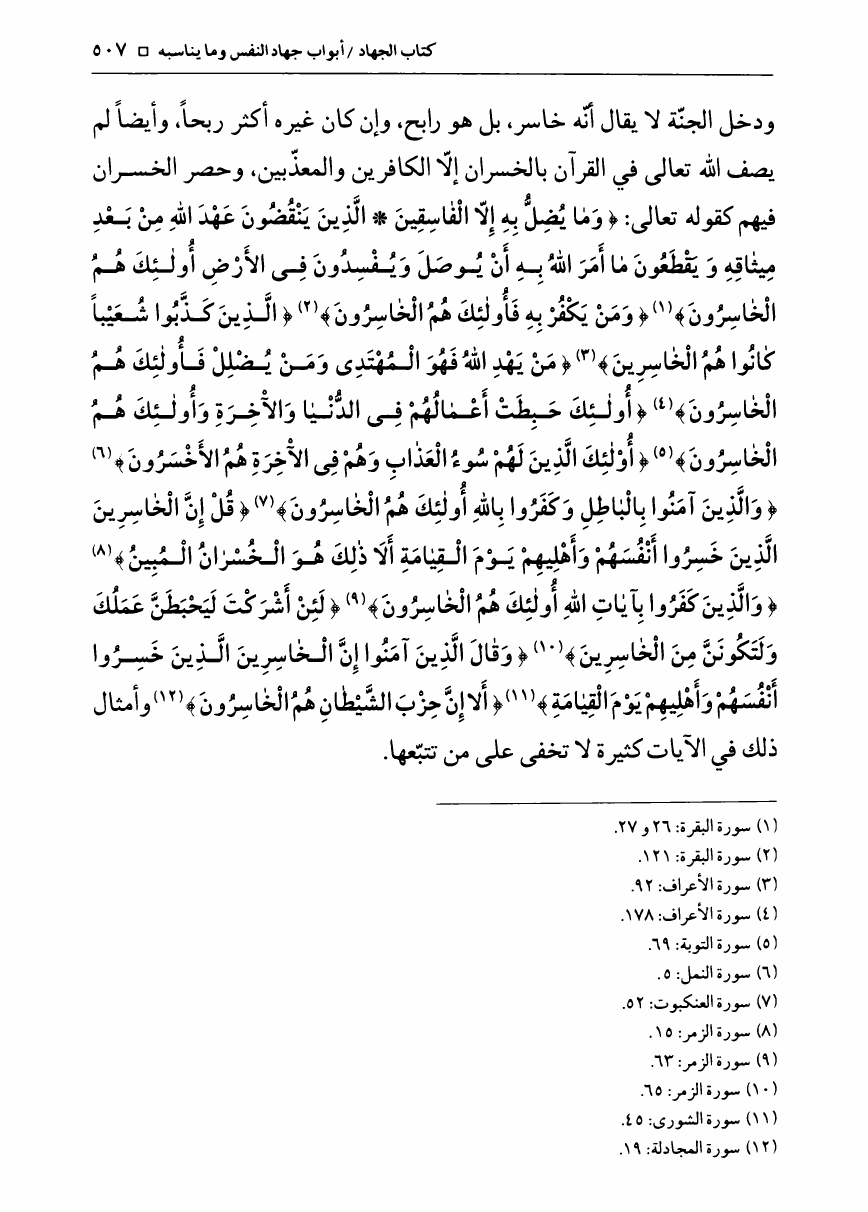 كتاب الجهاد / أبواب جهاد النفس وما يناسبه □ ٥٠٧
ودخل الجنّة لا يقال أنّه خاسر، بل هو رابح، وإن كان غيره أكثر ربحاً، وأيضاً لم
يصف الله تعالى في القرآن بالخسران إلّا الكافرين والمعذّبين، وحصر الخسران
فيهم كقوله تعالى: ﴿وَمٰا يُضِلُّ بِهِ إِلّا الْفٰاسِقِينَ * الَّذِينَ يَنْقُضُونَ عَهْدَ اللهِ مِنْ بَعْدِ
مِيثٰاقِهِ وَ يَقْطَعُونَ مٰا أَمَرَ اللهُ بِهِ أَنْ يُوصَلَ وَيُفْسِدُونَ فِى الأَرْضِ أُولٰئِكَ هُمُ
الْخٰاسِرُونَ﴾(١) ﴿وَمَنْ يَكْفُرْ بِهِ فَأُولٰئِكَ هُمُ الْخٰاسِرُونَ﴾(٢) ﴿الَّذِينَ كَذَّبُوا شُعَيْباً
كٰانُوا هُمُ الْخٰاسِرِينَ﴾(٣) ﴿مَنْ يَهْدِ اللهُ فَهُوَ الْمُهْتَدِى وَمَنْ يُضْلِلْ فَأُولٰئِكَ هُمُ
الْخٰاسِرُونَ﴾(٤) ﴿أُولٰئِكَ حَبِطَتْ أَعْمٰالُهُمْ فِى الدُّنْيٰا وَالآخِرَةِ وَأُولٰئِكَ هُمُ
الْخٰاسِرُونَ﴾(٥) ﴿أُوْلٰئِكَ الَّذِينَ لَهُمْ سُوءُ الْعَذٰابِ وَهُمْ فِى الآخِرَةِ هُمُ الأَخْسَرُونَ﴾(٦)
﴿وَالَّذِينَ آمَنُوا بِالْبٰاطِلِ وَكَفَرُوا بِاللهِ أُولٰئِكَ هُمُ الْخٰاسِرُونَ﴾(٧) ﴿قُلْ إِنَّ الْخٰاسِرِينَ
الَّذِينَ خَسِرُوا أَنْفُسَهُمْ وَأَهْلِيهِمْ يَوْمَ الْقِيٰامَةِ أَلَا ذٰلِكَ هُوَ الْخُسْرٰانُ الْمُبِينُ﴾(٨)
﴿وَالَّذِينَ كَفَرُوا بِآيٰاتِ اللهِ أُولٰئِكَ هُمُ الْخٰاسِرُونَ﴾(٩) ﴿لَئِنْ أَشْرَكْتَ لَيَحْبَطَنَّ عَمَلُكَ
وَلَتَكُونَنَّ مِنَ الْخٰاسِرِينَ﴾(١٠) ﴿وَقٰالَ الَّذِينَ آمَنُوا إِنَّ الْخٰاسِرِينَ الَّذِينَ خَسِرُوا
أَنْفُسَهُمْ وَأَهْلِيهِمْ يَوْمَ الْقِيٰامَةِ﴾(١١) ﴿أَلا إِنَّ حِزْبَ الشَّيْطٰانِ هُمُ الْخٰاسِرُونَ﴾(١٢) وأمثال
ذلك في الآيات كثيرة لا تخفى على من تتبّعها.
(١) سورة البقرة: ٢٦ و ٢٧.
(٢) سورة البقرة: ١٢١.
(٣) سورة الأعراف: ٩٢.
(٤) سورة الأعراف: ١٧٨.
(٥) سورة التوبة: ٦٩.
(٦) سورة النمل: ٥.
(٧) سورة العنكبوت: ٥٢.
(٨) سورة الزمر: ١٥.
(٩) سورة الزمر: ٦٣.
(١٠) سورة الزمر: ٦٥.
(١١) سورة الشورى: ٤٥.
(١٢) سورة المجادلة: ١٩.